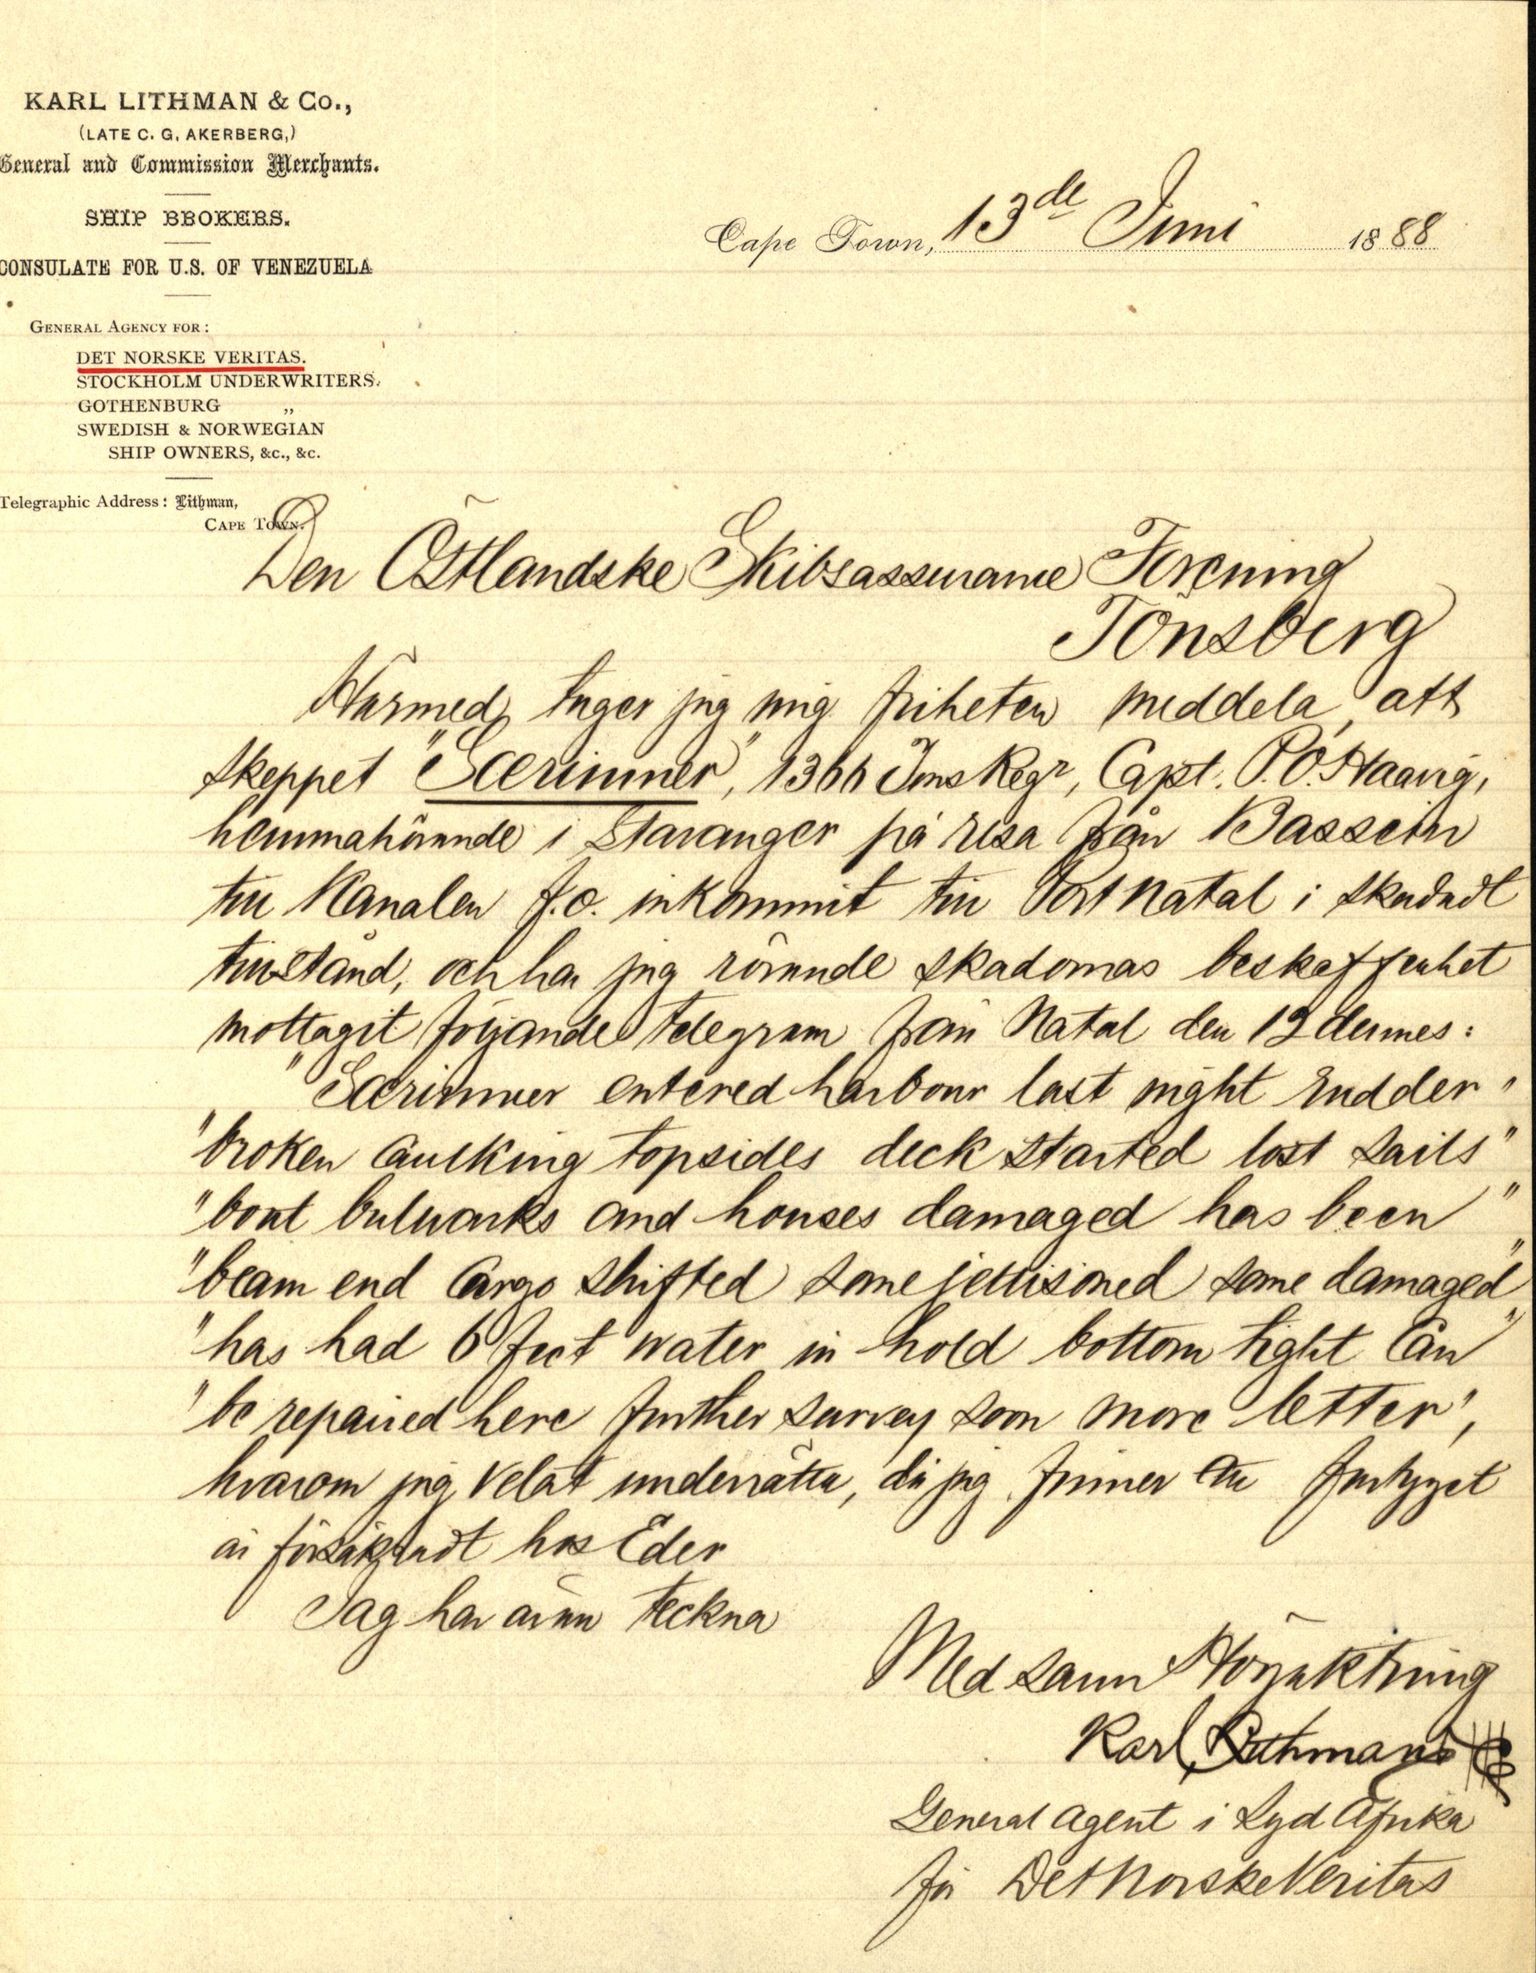 KARL LITHMAN & Co.,
(LATE C. G. AKERBERG,)
General and Commission Merchants.
SHIP BROKERS.
CONSULATE FOR U.S. OF VENEZUELA
GENERAL AGENCY FOR:
DET NORSKE VERITAS.
STOCKHOLM UNDERWRITERS.
GOTHENBURG „
SWEDISH & NORWEGIAN
SHIP OWNERS, &c., &c.
Telegraphic Address: Lithman,
CAPE TOWN.
Cape Town, 13de Juni 1888
Den Östlandske Skibsassurance Forening
Tönsberg
Härmed tager jag mig friheten meddela, att
skeppet "Særimner", 1366 Tons Regr, Capt. P.O. Haavig,
hemmahörande i Stavanger på resa från Bassein
till Kanalen f.o. inkommit till Port Natal i skadadt
tillstånd, och har jag rörande skadornas beskaffenhet
mottagit följande telegram från Natal den 12 dennes:
"Særimner entered harbour last night rudder"
"broken caulking topsides deck started lost sails"
"boat bulwarks and houses damaged has been"
"beam end cargo shifted some jettisoned some damaged"
"has had 6 feet water in hold bottom tight can"
"be repaired here further survey soon more letter",
hvarom jag velat underrätta, då jag finner att fartyget
är försäkradt hos Eder
Jag har äran teckna
Med sann Högaktning
Karl Lithman & Co
General Agent i Syd Afrika
för Det Norske Veritas